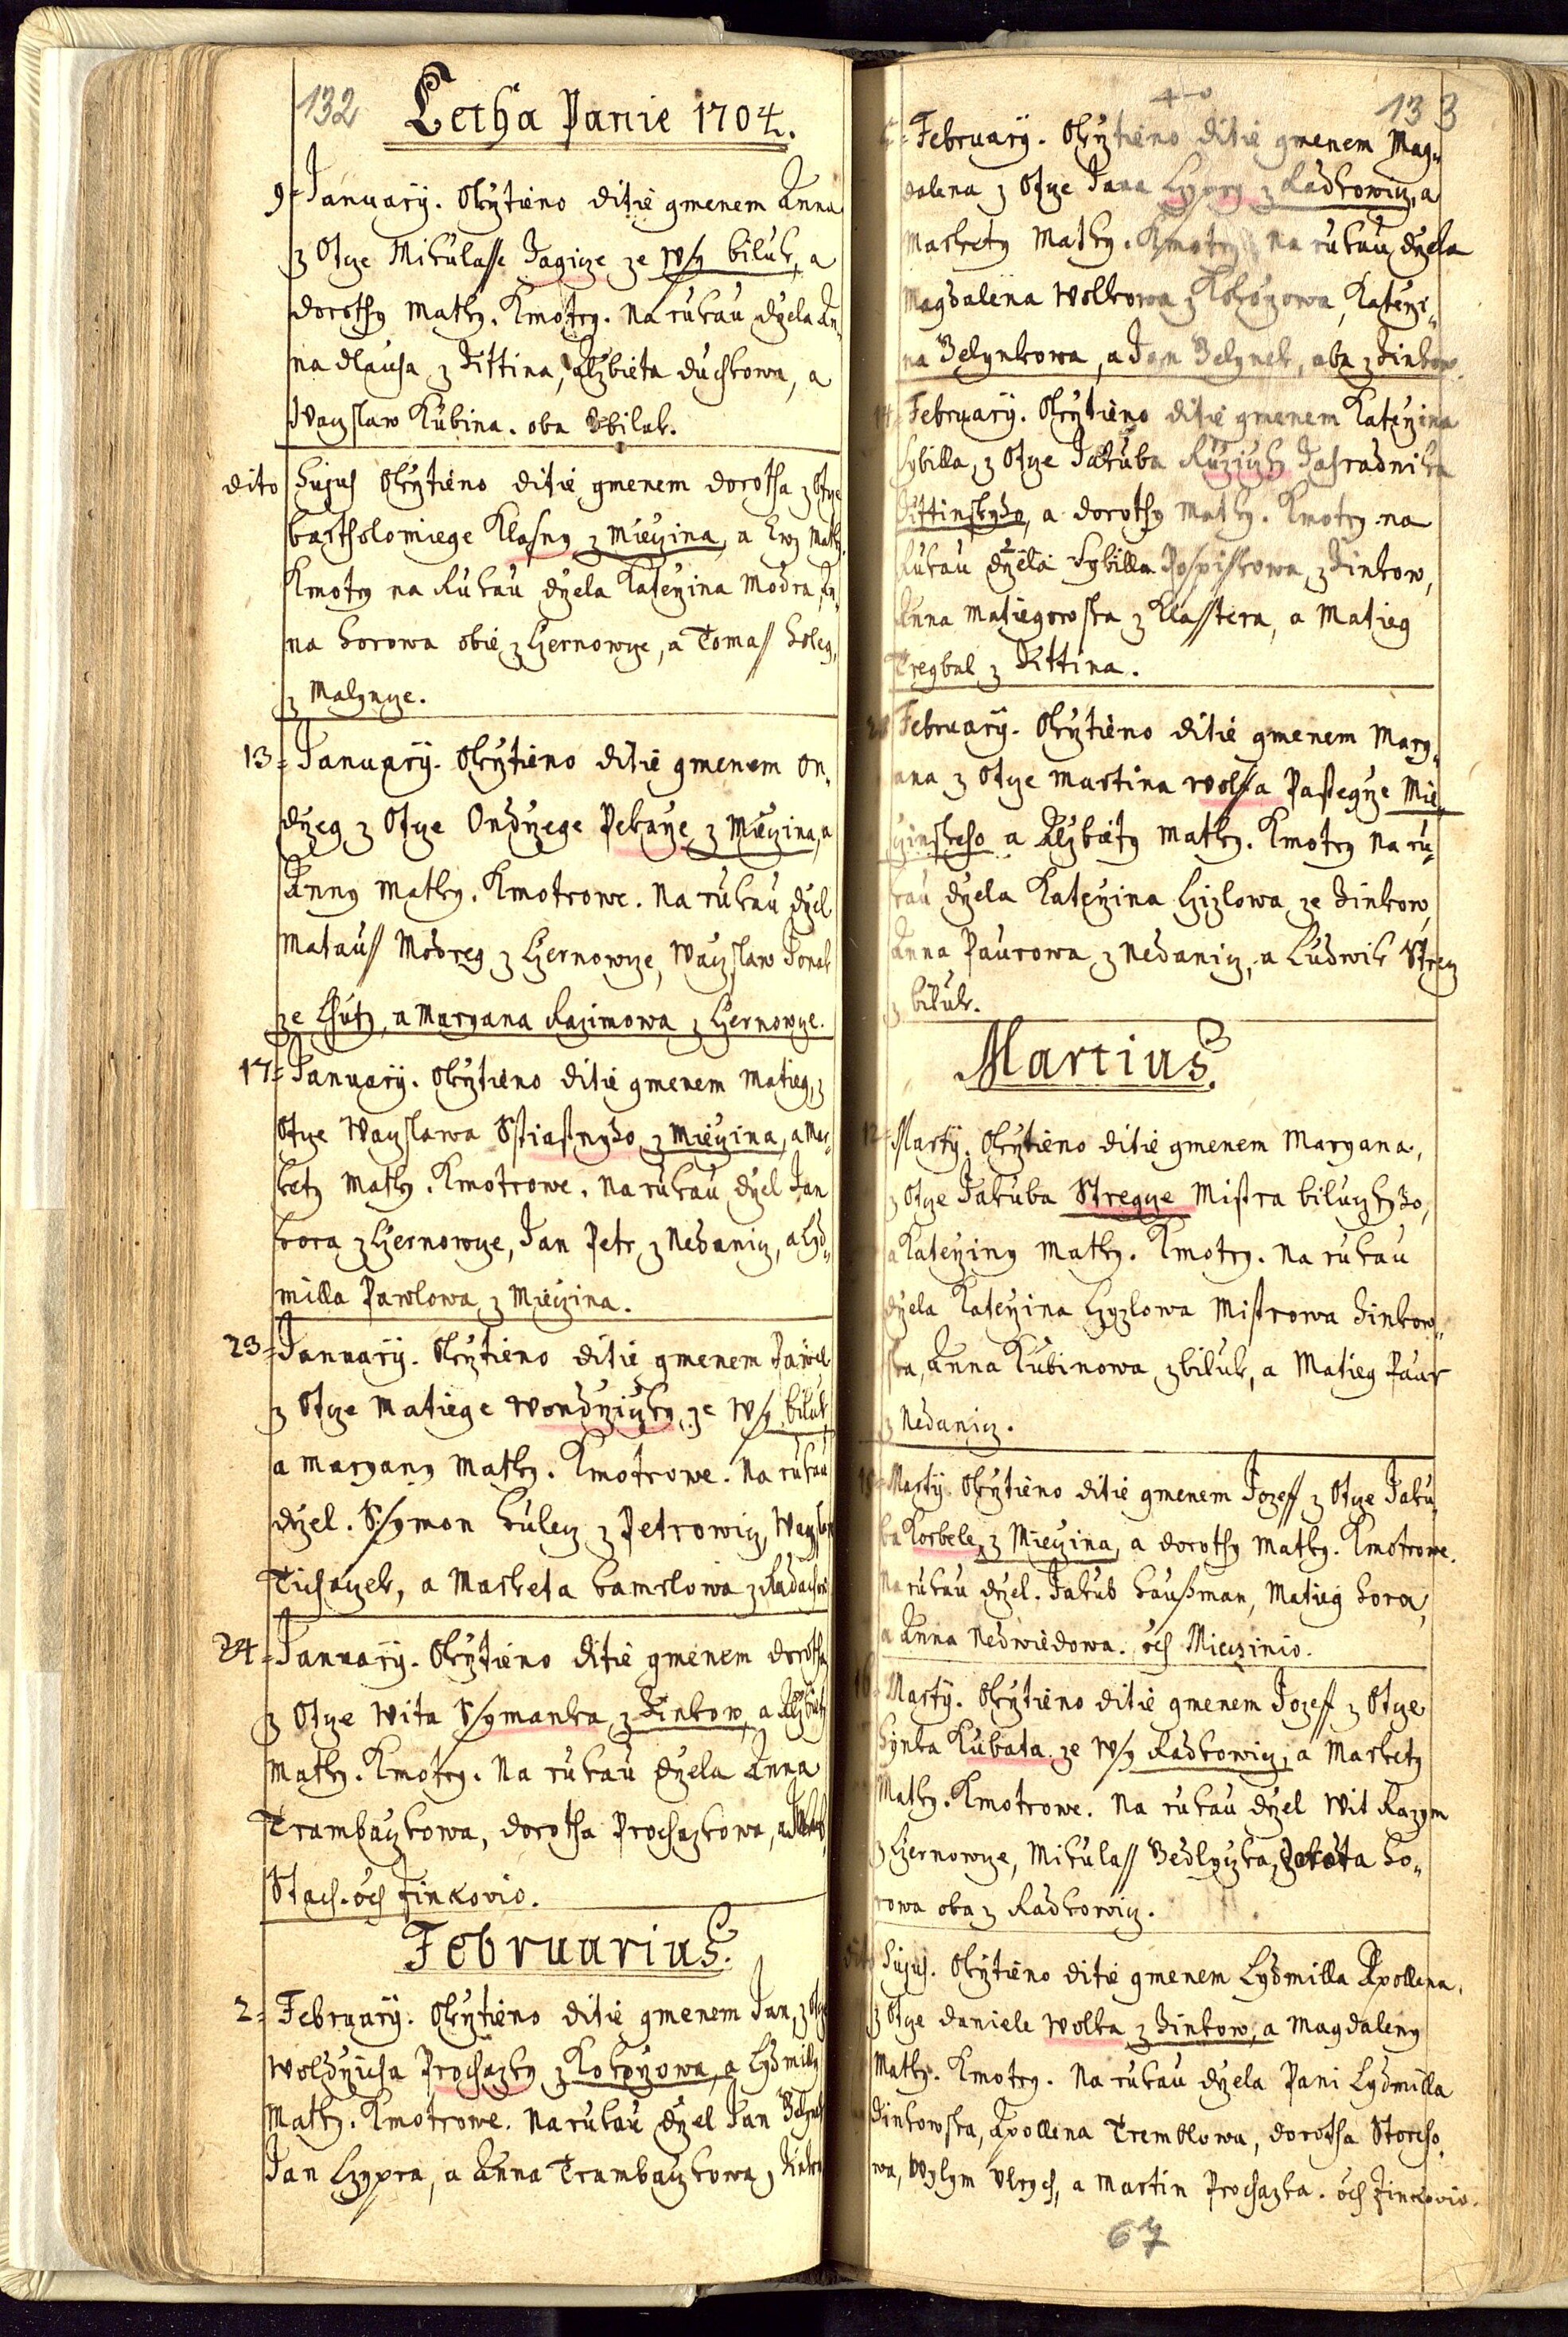 132 Letha Panie 1704.
9 = Januarÿ. Okrztieno ditie gmenem Anna
z Otcze Mikulasse Jagicze ze Wsy biluk, a
dorothy Matky. Kmotry. Na rukau drzela An„
na dlauha z Zittina, Alzbieta duchkowa, a
Wacyslaw Kubina. oba z biluk.
dito hujus Okrztieno ditie gmenem dorotha z Otcze
bartholomiege Klasny z Mieczina, a Ewy Matky.
Kmotry na Rukau drzela Katerzina Modra, An„
na horowa obie z Czernowcze, a Tomass holeg,
z Malyncze.
13 = Januarÿ. Okrztieno ditie gmenem On„
drzeg z Otcze Ondrzege Pekarze z Mieczina, a
Anny Matky. Kmotrowe. Na rukau drzel
Matauss Modreg z Czernowcze, Waczslaw Jonak
ze Lhuty, a Maryana Razimowa z Czernowcze.
17 = Januarÿ. Okrztieno ditie gmenem Matieg, z
Otcze Waczslawa Stiastnyho z Mieczina, a Mar„
kety Matky. Kmotrowe. Na rukau drzel Jan
hora z Czernowcze, Jan Petr z Nedanicz, a Lyd„
milla Pawlowa z Mieczina.
23 = Januarÿ. Okrztieno ditie gmenem Pawel
z Otcze Matiege Wondrziczky, ze Wsy biluk,
a Maryany Matky. Kmotrowe. Na rukau
drzel. Ssymon Kulecz z Petrowicz,
Tichaczek, a Marketa
24 = Januarÿ. Okrztieno ditie gmenem dorotha
z Otcze Wita Ssymanka z Zinkow, a Alzbiety
Matky. Kmotry. Na rukau drzela Anna
Trambaczkowa, dorotha Prochazkowa, a
Stach. oës Zinkovio.
Februarius.
2 = Februarÿ. Okrztieno ditie gmenem Jan, z Otcze
Woldrzicha Prochazky z Kokorzowa, a Lydmilly
Matky. Kmotrowe. Na rukau drzel Jan
Jan Czypra, a Anna Trambaczkowa z Zinkow
133
Februarÿ. Okrztieno ditie gmenem Mag„
dalena z Otcze Jana Czypry z Radkowicz, a
Markety Matky. Kmotry. Na rukau drzela
Magdalena Wolkowa z Kokorzowa, Katerzi„
na Belynkowa, a Jan Belynek, oba z Zinkow.
14 = Februarÿ. Okrztieno ditie gmenem Katerzina
Sybilla, z Otcze Jakuba Ruziczky Zahradnika
Zittinskyho, a dorothy Matky. Kmotry. na
Rukau drzela Sybilla Pospisskowa z Zinkow,
Anna Matiegowska z Klasstera, a Matieg
Tregbal z Zittina.
Februarÿ. Okrztieno ditie gmenem Mary„
ana z Otcze Martina Wolfa Pastegrze Mie„
czinskeho a Alzbiety Matky. Kmotry Na ru„
kau drzela Katerzina Czizlowa ze Zinkow,
Anna Paurowa z Nedanicz, a Ludwik Streg
z biluk.
Martius.
12 = Martÿ. Okrztieno ditie gmenem Maryana,
z Otcze Jakuba Stregcze Mistra biluczkyho,
a Katerziny Matky. Kmotry. Na rukau
drzela Katerzina Czyzlowa Mistrowa Zinkow„
ska, Anna Kubinowa z biluk, a Matieg Paur
z Nedanicz.
Martÿ. Okrztieno ditie gmenem Jozeff z Otcze Jaku„
ba Korbele z Mieczina, a dorothy Matky. Kmotrowe.
Na rukau drzel. Jakub haußman, Matieg hora,
a Anna Nedwiedowa. oës Mieczinio.
16 = Martÿ. Okrztieno ditie gmenem Jozeff z Otcze
hynka Kubata ze Wsy Radkowicz, a Markety
Matky. Kmotrowe. Na rukau drzel Wit Razym
z Czernowcze, Mikulass Bedlyczka, Dorota ho„
rowa oba z Radkowicz.
dito hujus. Okrztieno ditie gmenem Lydmilla Apollena.
z Otcze Daniele Wolka z Zinkow, a Magdaleny
Matky. Kmotry. Na rukau drzela Pani Lydmilla
Zinkowska, Apollena Tremblowa, dorotha Storcho„
wa, Wylym Ulrych, a Martin Prochazka. oës Zinkovio.
67